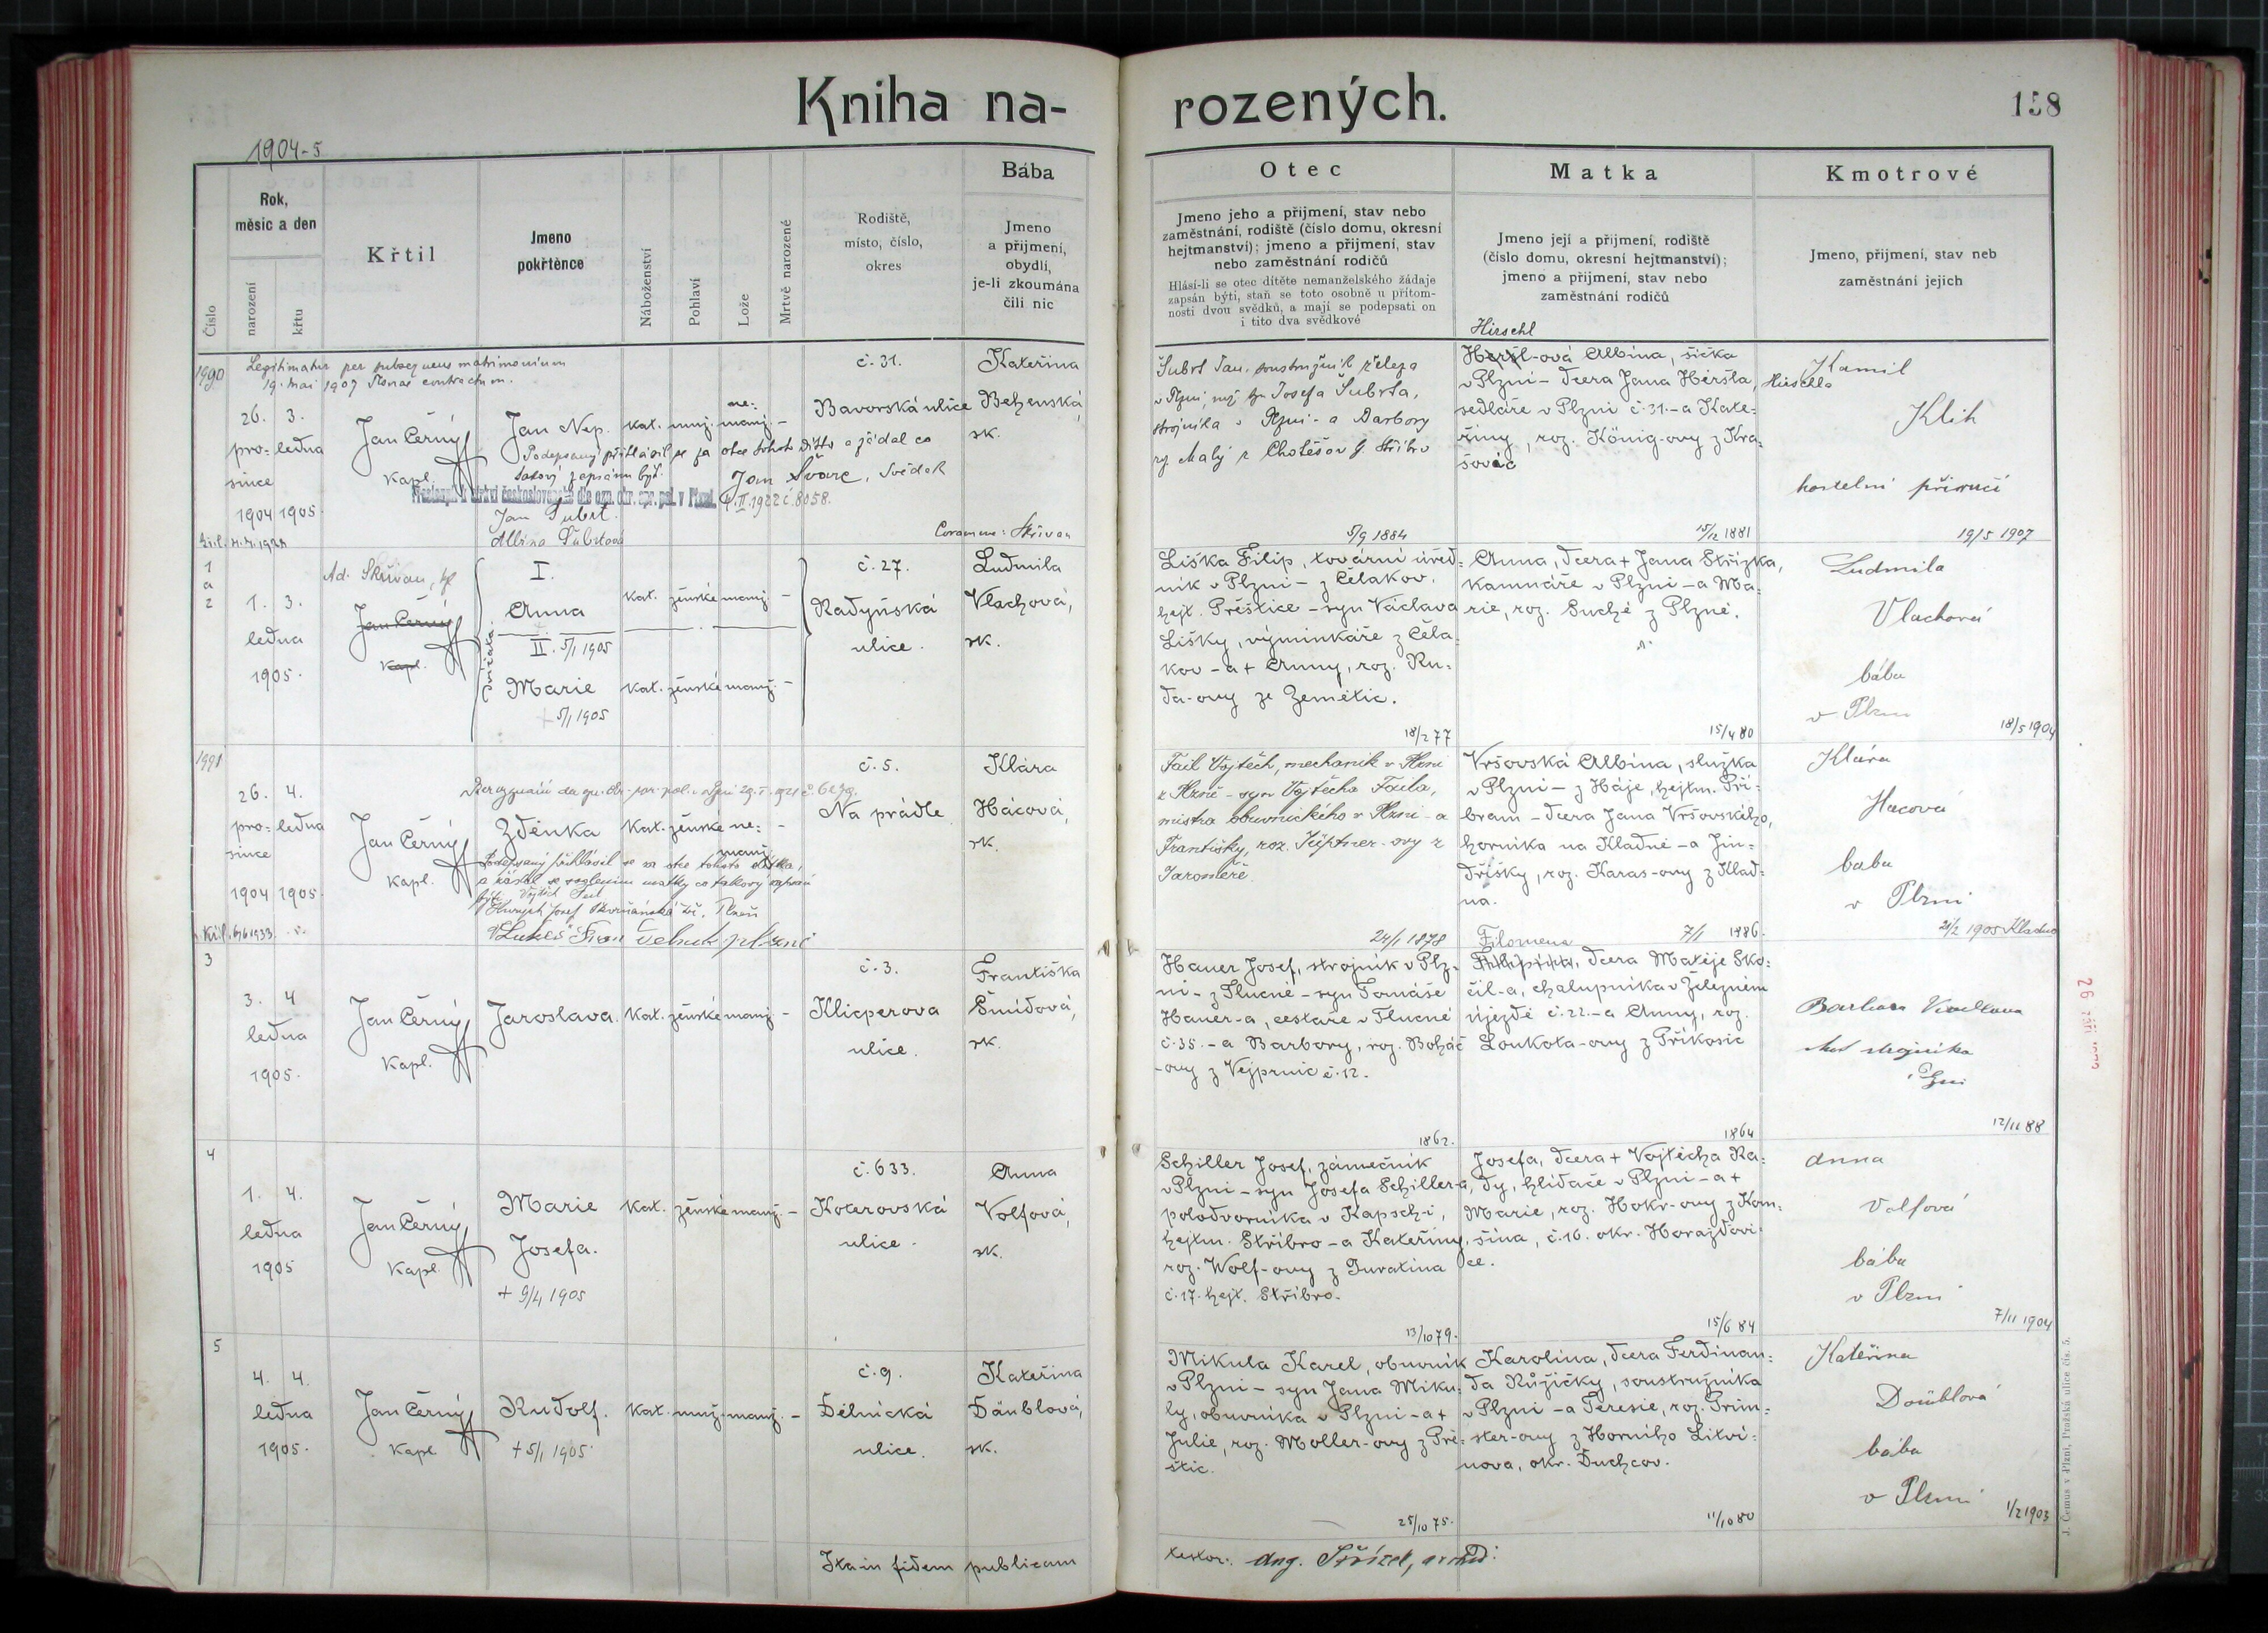 Kniha na-
rozených.
158
1904-5
Číslo
Rok,
měsíc a den
narození
křtu
Křtil
Jmeno
pokřtěnce
Náboženství
Pohlaví
Lože
Mrtvě narozené
Rodiště,
místo, číslo,
okres
Bába
Jmeno
a přijmení,
obydlí,
je-li zkoumána
čili nic
Otec
Jmeno jeho a přijmení, stav nebo
zaměstnání, rodiště (číslo domu, okresní
hejtmanství); jmeno a přijmení, stav
nebo zaměstnání rodičů
Hlásí-li se otec dítěte nemanželského žádaje
zapsán býti, staň se toto osobně u přítom-
nosti dvou svědků, a mají se podepsati on
i tito dva svědkové
Matka
Jmeno její a přijmení, rodiště
(číslo domu, okresní hejtmanství);
jmeno a přijmení, stav nebo
zaměstnání rodičů
Kmotrové
Jmeno, přijmení, stav neb
zaměstnání jejich
1990
Legitimatur per subsequens matrimonium
19. mai 1907 Plsnae contractum.
26. 3.
pro- ledna
since
1904 1905
Jan Černý
kapl.
Jan Nep.
kat. muž. ne-
manž. -
Podepsaný přihlásil se za otce tohoto dítěte a žádal co
takový zapsánu býti.
Jan Švarc, svědek
4. II. 1922 č. 8058.
Jan Šubrt
Albina Šubrtová
č. 31.
Bavorská ulice
Kateřina
Behenská,
zk.
Coram me: Skřivan
Šubrt Jan, soustružník železa
v Plzni, syn Josefa Šubrta,
strojníka v Plzni - a Barbory
roz. Malý z Chotěšov hej. Stříbro
5/9 1884
Hirschl
Heršl-ová Albina, šička
v Plzni - dcera Jana Heršla, Hirschla
sedláře v Plzni č. 31. - a Kate-
řiny, roz. König-ovy z Kra-
šovic
15/12 1881
Kamil
Klik
hostelní příručí
19/5 1907
1
a
2
1. 3.
ledna
1905.
Ad. Skřivan, kpl
Jan Černý
kapl.
Dvojčata.
I.
Anna
II. 5/1 1905
Marie
+ 5/1 1905
kat. ženské manž. -
kat. ženské manž. -
č. 27.
Radyňská
ulice.
Ludmila
Vlachová,
zk.
Liška Filip, tovární úřed-
ník v Plzni - z Čelakov.
hejt. Přeštice - syn Václava
Lišky, výminkáře z Čela-
kov - a + Anny, roz. Ru-
da-ovy ze Zemětic.
18/2 77
Anna, dcera + Jana Střízka,
kamnáře v Plzni - a Ma-
rie, roz. Suché z Plzně.
15/4 80
Ludmila
Vlachová
bába
v Plzni
18/5 1904
1991
26. 4.
pro- ledna
since
1904 1905.
Jan Černý
kapl.
Zděnka
kat. ženské ne-
manž. -
Podepsaný přihlásil se za otce tohoto dítka,
a žádal se svolením matky co takový zapsán
býti. Vojtěch Fait
č. 5.
Na prádle
Klára
Hácová,
zk.
Fait Vojtěch, mechanik v Plzni
z Plzně - syn Vojtěcha Faita,
mistra obuvnického v Plzni - a
Františky, roz. Küptner-ovy z
Jaroměře.
24/1 1878
Vršovská Albina, služka
v Plzni - z Háje, hejtm. Pří-
bram - dcera Jana Vršovského,
horníka na Kladně - a Jin-
dřišky, roz. Karas-ovy z Klad-
na.
7/1 1886.
Klára
Hacová
baba
v Plzni
21/2 1905 Kladno
3
3. 4
ledna
1905.
Jan Černý
kapl.
Jaroslava.
kat. ženské manž. -
č. 3.
Klicperova
ulice.
Františka
Šmídová,
zk.
Hauer Josef, strojník v Plz-
ni - z Tlucné - syn Tomáše
Hauer-a, cestáře v Tlucné
č. 35. - a Barbory, roz. Boháč
-ovy z Vejprnic č. 12.
1862.
Filomena
dcera Matěje Sko-
čil-a, chalupníka v Železném
újezdě č. 22. - a Anny, roz.
Loukota-ovy z Příkosic
1864
Barbora
chot strojníka
12/11 88
4
1. 4.
ledna
1905
Jan Černý
kapl.
Marie
Josefa.
+ 9/4 1905
kat. ženské manž. -
č. 633.
Koterovská
ulice.
Anna
Volfová,
zk.
Schiller Josef, zámečník
v Plzni - syn Josefa Schiller-a,
polodvorníka v Kapsch-i,
hejtm. Stříbro - a Kateřiny,
roz. Wolf-ovy z Guratina
č. 17. hejt. Stříbro.
13/10 79.
Josefa, dcera + Vojtěcha Ra-
dy, hlídače v Plzni - a +
Marie, roz. Hokr-ovy z Kom-
šína, č. 16. okr. Horažďovi-
ce.
15/6 84
Anna
Volfová
bába
v Plzni
7/11 1904
5
4. 4.
ledna
1905.
Jan Černý
kapl
Rudolf.
+ 5/1 1905.
kat. muž. manž. -
č. 9.
Dělnická
ulice.
Kateřina
Däublová,
zk.
Mikula Karel, obuvník
v Plzni - syn Jana Miku-
ly, obuvníka v Plzni - a +
Julie, roz. Moller-ovy z Pře-
štic.
25/10 75.
Karolina, dcera Ferdinan-
da Růžičky, soustružníka
v Plzni - a Teresie, roz. Prün-
ster-ovy z Horního Litví-
nova, okr. Duchcov.
11/10 80
Kateřina
Doüblová
bába
v Plzni
1/2 1903
Ita in fidem publicam
testor:
J. Černus v Plzni, Pražská ulice čís. 5.